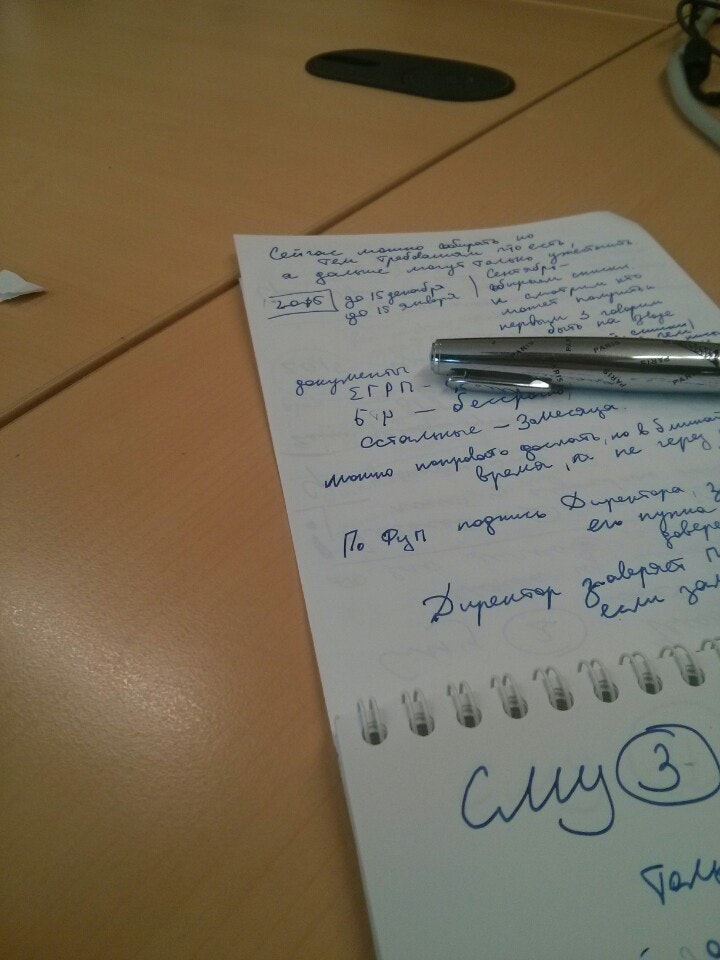 Сейчас можно собирать по
тем требованиям что есть,
а дальше могут только ужесточить
2015 до 15 декабря
до 15 января
Сентябрь -
собираем списки
и смотрим кто
может получить
первым 3 говорим
быть на
документы
ЕГРП -
БУ —
Остальные — 3 месяца.
можно попробовать дослать, но в ближай
время, а не через
По ФЦП подпись Директора,
его нужна
довере
Директор заверяет
если
PARIS PARIS PARIS
СМУ 3
Толь